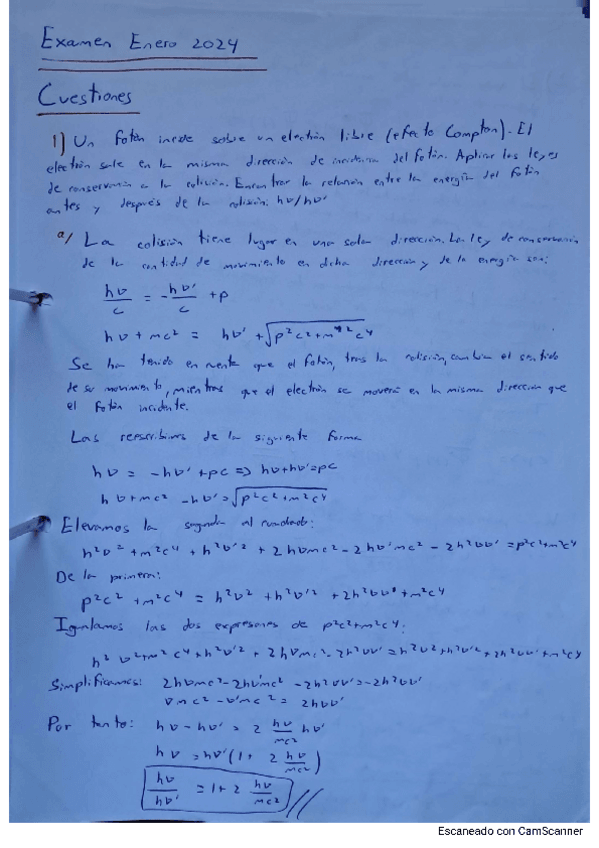 Examen Enero 2024
Cuestiones
1) Un fotón incide sobre un electrón libre (efecto Compton). El
electrón sale en la misma dirección de incidencia del fotón. Aplicar las leyes
de conservación a la colisión. Encontrar la relación entre la energía del fotón
antes y después de la colisión: hν/hν'
a/ La colisión tiene lugar en una sola dirección. La ley de conservación
de la cantidad de movimiento en dicha dirección y de la energía son:
hν/c = -hν'/c + p
hν + mc² = hν' + √(p²c² + m²c⁴)
Se ha tenido en cuenta que el fotón, tras la colisión, cambia el sentido
de su movimiento, mientras que el electrón se moverá en la misma dirección que
el fotón incidente.
Las reescribimos de la siguiente forma
hν = -hν' + pc => hν + hν' = pc
hν + mc² - hν' = √(p²c² + m²c⁴)
Elevamos la segunda al cuadrado:
h²ν² + m²c⁴ + h²ν'² + 2hνmc² - 2hν'mc² - 2h²νν' = p²c² + m²c⁴
De la primera:
p²c² + m²c⁴ = h²ν² + h²ν'² + 2h²νν' + m²c⁴
Igualamos las dos expresiones de p²c² + m²c⁴:
h²ν² + m²c⁴ + h²ν'² + 2hνmc² - 2h²νν' = h²ν² + h²ν'² + 2h²νν' + m²c⁴
Simplificamos: 2hνmc² - 2hν'mc² - 2h²νν' = -2h²νν'
νmc² - ν'mc² = 2hνν'
Por tanto: hν - hν' = 2 hν/mc² hν'
hν = hν'(1 + 2 hν/mc²)
hν/hν' = 1 + 2 hν/mc²
Escaneado con CamScanner